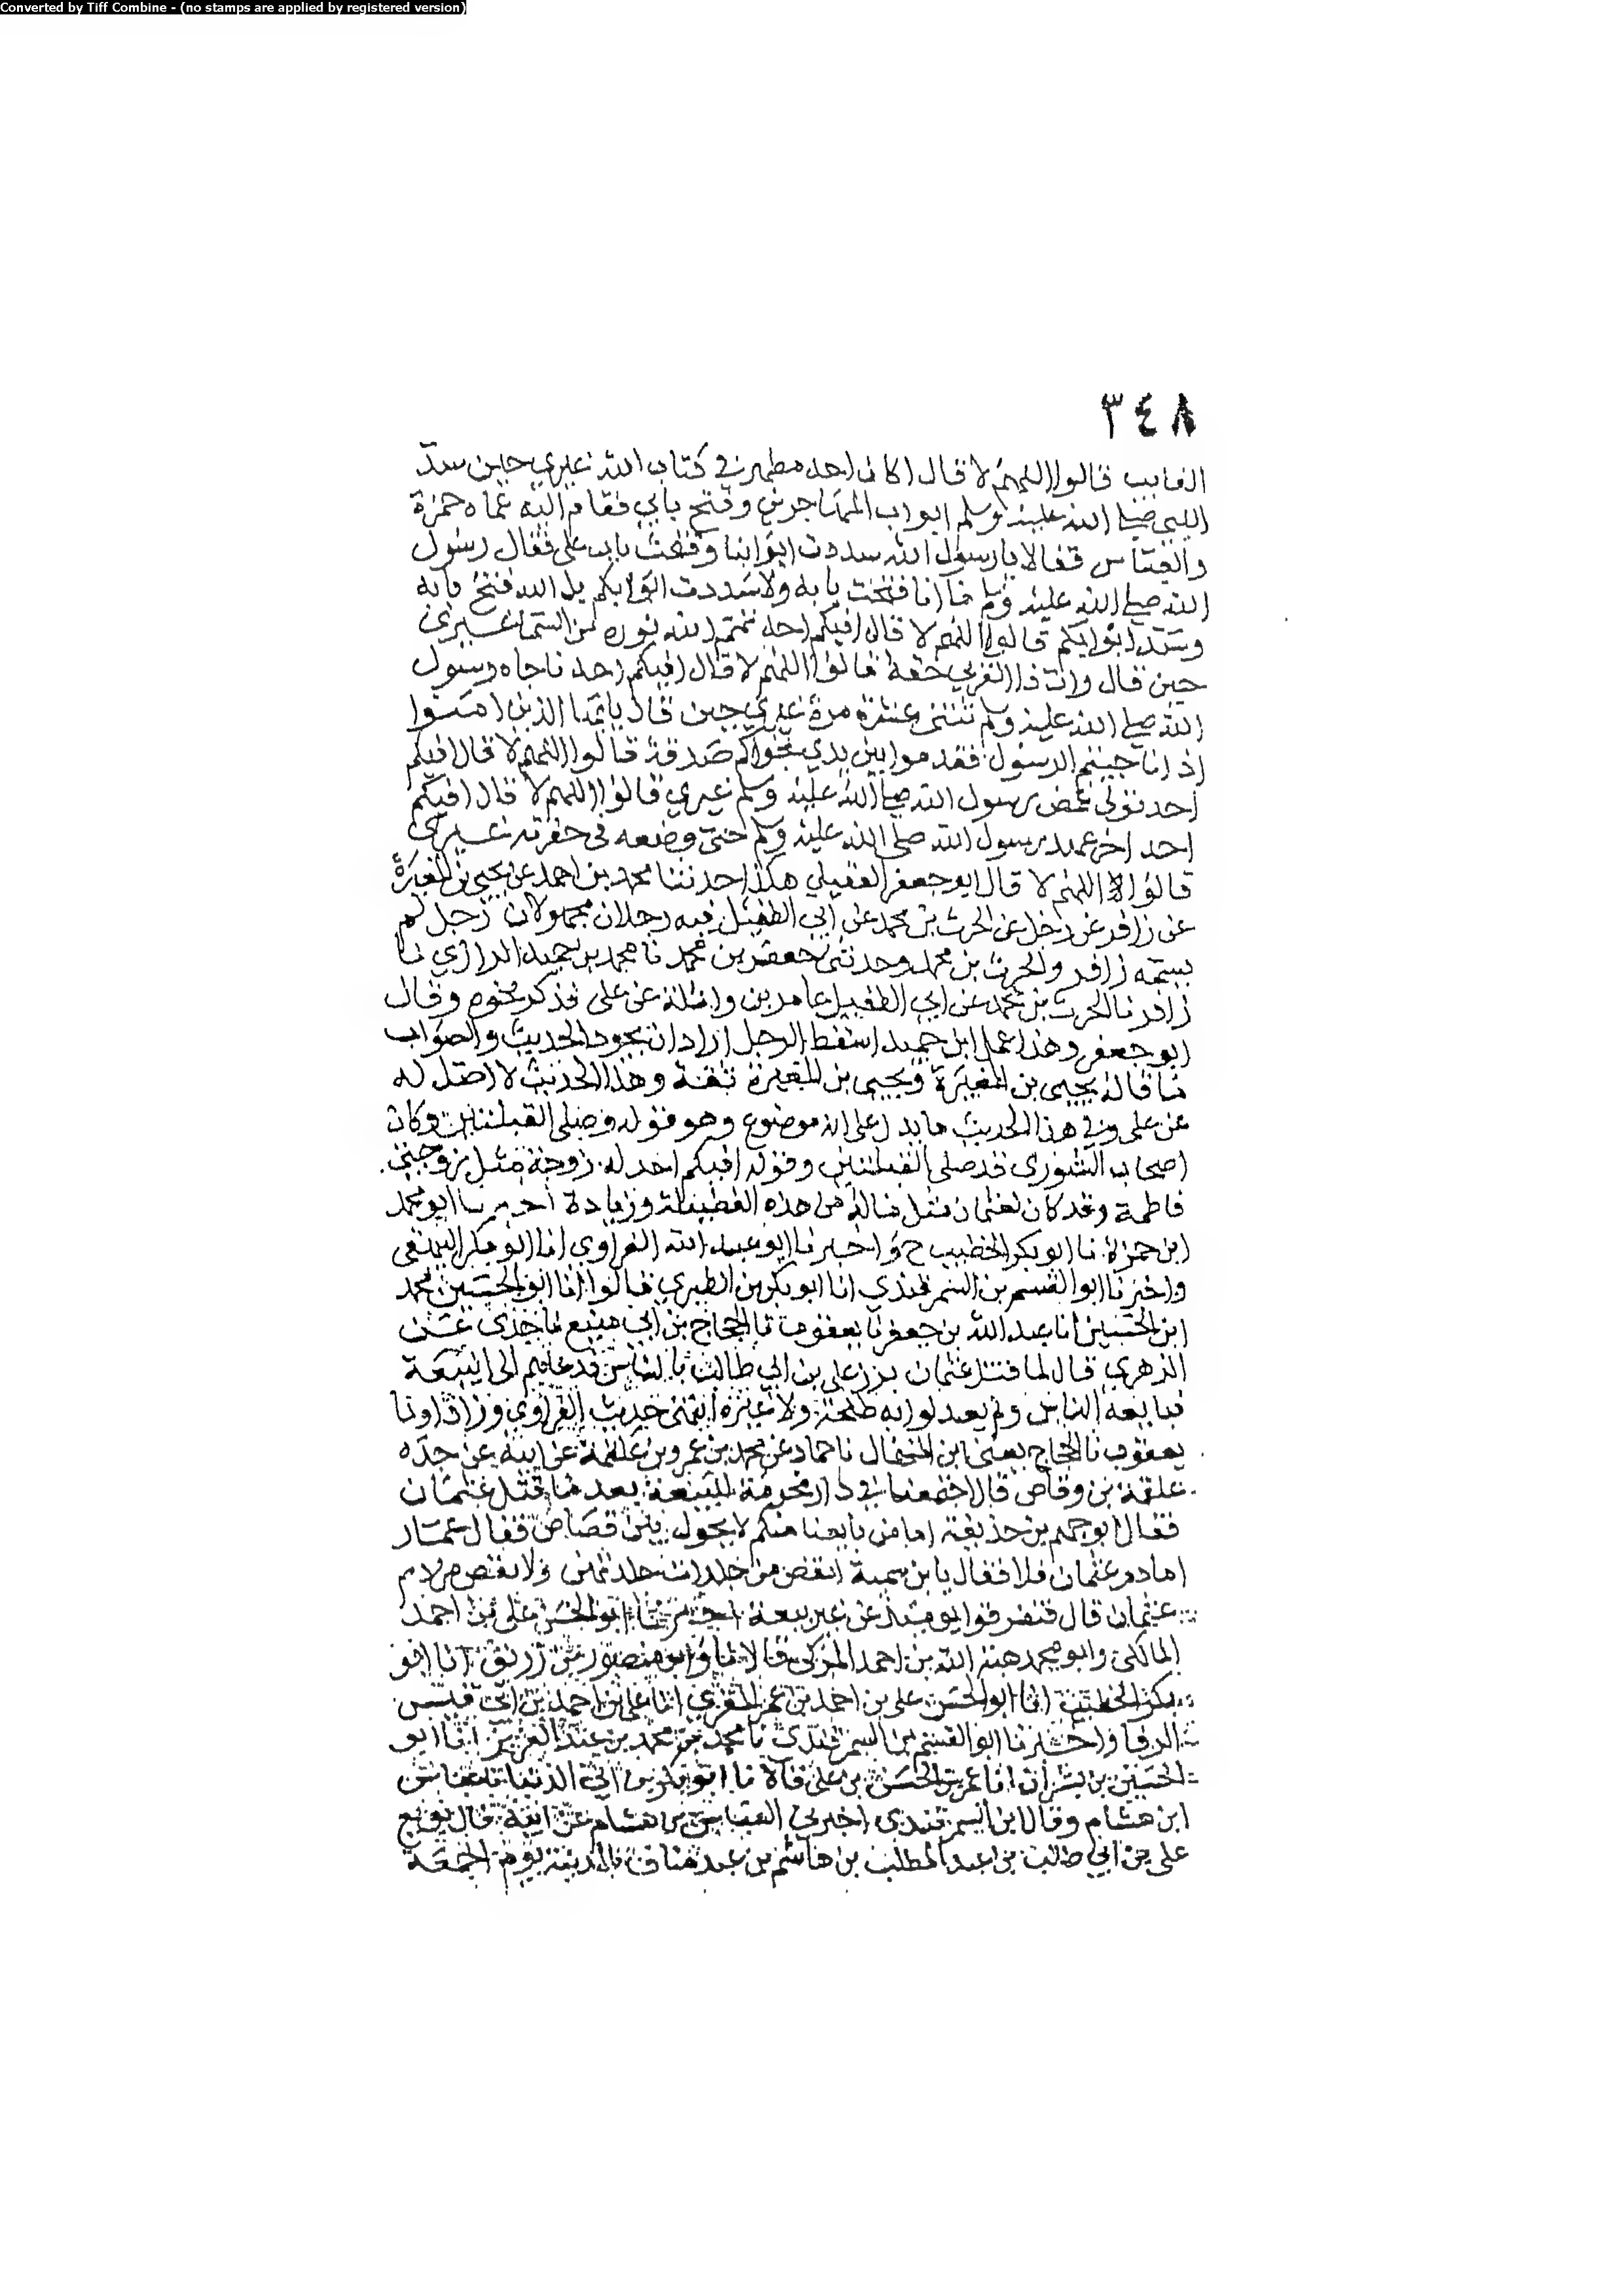 Converted by Tiff Combine - (no stamps are applied by registered version)
٣٤٨
الغايب قالوا اللهم لا قال اكان احد مطهر في كتاب الله غيري حين سد
النبي صلى الله عليه وسلم ابواب المهاجرين وفتح بابي فقام اليه عماه حمزة
والعباس فقالا يا رسول الله سددت ابوابنا وفتحت باب على فقال رسول
الله صلى الله عليه وسلم ما انا فتحت بابه ولا سددت ابوابكم بل الله فتح بابه
وسد ابوابكم قالوا اللهم لا قال افيكم احد تمم الله نوره من السما غيري
حين قال وات ذا القربي حقه قالوا اللهم لا قال افيكم احد ناجاه رسول
الله صلى الله عليه وسلم ثنتى عشرة مرة غيري حين قال يا يها الذين امنوا
اذا ناجيتم الرسول فقدموا بين يدي نجواكم صدقة قالوا اللهم لا قال افيكم
احد تولى غمض رسول الله صلى الله عليه وسلم غيري قالوا اللهم لا قال افيكم
احد اخر عهد برسول الله صلى الله عليه وسلم حتى وضعه في حفرته غيري
قالوا اللهم لا قال ابو جعفر العقيلي هكذا حدثنا محمد بن احمد عن يحيى بن المغيرة
عن زافر عن رجل عن الحرث بن محمد عن ابي الطفيل فيه رجلان مجهولان رجل لم
يسمه زافر والحرث بن محمد وحدثني جعفر بن محمد نا محمد بن حميد الرازي نا
زافر نا الحرث بن محمد عن ابي الطفيل عامر بن واثلة عن على فذكر نحوه وقال
ابو جعفر وهذا عمل ابن حميد اسقط الرجل اراد ان يجود الحديث والصواب
ما قاله يحيى بن المغيرة ويحيى بن المغيرة ثقة وهذا الحديث لا اصل له
عن على وفي هذا الحديث ما يدل على انه موضوع وهو قوله وصلى القبلتين وكان
اصحاب الشورى قد صلى القبلتين وقوله افيكم احد له زوجة مثل زوجتي
فاطمة وقد كان لعثمان مثل ماله من هذه الفضيلة وزيادة اخبرنا ابو محمد
ابن حمزة نا ابو بكر الخطيب ح واخبرنا ابو عبد الله الفراوي انا ابو بكر البيهقي
واخبرنا ابو القسم بن السمرقندي انا ابو بكر بن الطبري قالوا انا ابو الحسين محمد
ابن الحسين انا عبد الله بن جعفر نا يعقوب نا الحجاج بن ابي منيع نا جدى عن
الزهري قال لما قتل عثمان برز على بن ابي طالب بالناس فدعاهم الى البيعة
فبايعه الناس ولم يعدلوا به طلحة ولا غيره انتهى حديث الفراوي وزاد اونا
يعقوب نا الحجاج يعنى ابن المنهال نا حماد عن محمد بن عمرو بن علقمة عن ابيه عن جده
علقمة بن وقاص قال اجتمعنا في دار مخرمة للبيعة بعد ما قتل عثمان
فقال ابو جهم بن حذيفة اما من بايعنا منكم لا يحول بين قصاص فقال عمار
اما دم عثمان فلا فقال يا بن سمية اتقص من جلدات جلدتهن ولا تقص من دم
عثمان قال فتفرقوا يوميذ عن غير بيعة اخبرنا ابو الحسن على بن احمد
المالكى وابو محمد هبة الله بن احمد المزكى قالا نا وابو منصور بن زريق انا ابو
بكر الخطيب انا ابو الحسن على بن احمد بن عمر المقري انا على بن احمد بن ابي قيس
الرفا واخبرنا ابو القسم بن السمرقندى نا محمد بن محمد بن عبد العزيز انا ابو
الحسين بن بشران انا عمر بن الحسن بن على قالا نا ابو بكر بن ابي الدنيا نا عباس
ابن هشام وقال ابن السمرقندى اخبرني العباس بن هشام عن ابيه قال بويع
على بن ابي طالب بن عبد المطلب بن هاشم بن عبد مناف بالمدينة يوم الجمعة